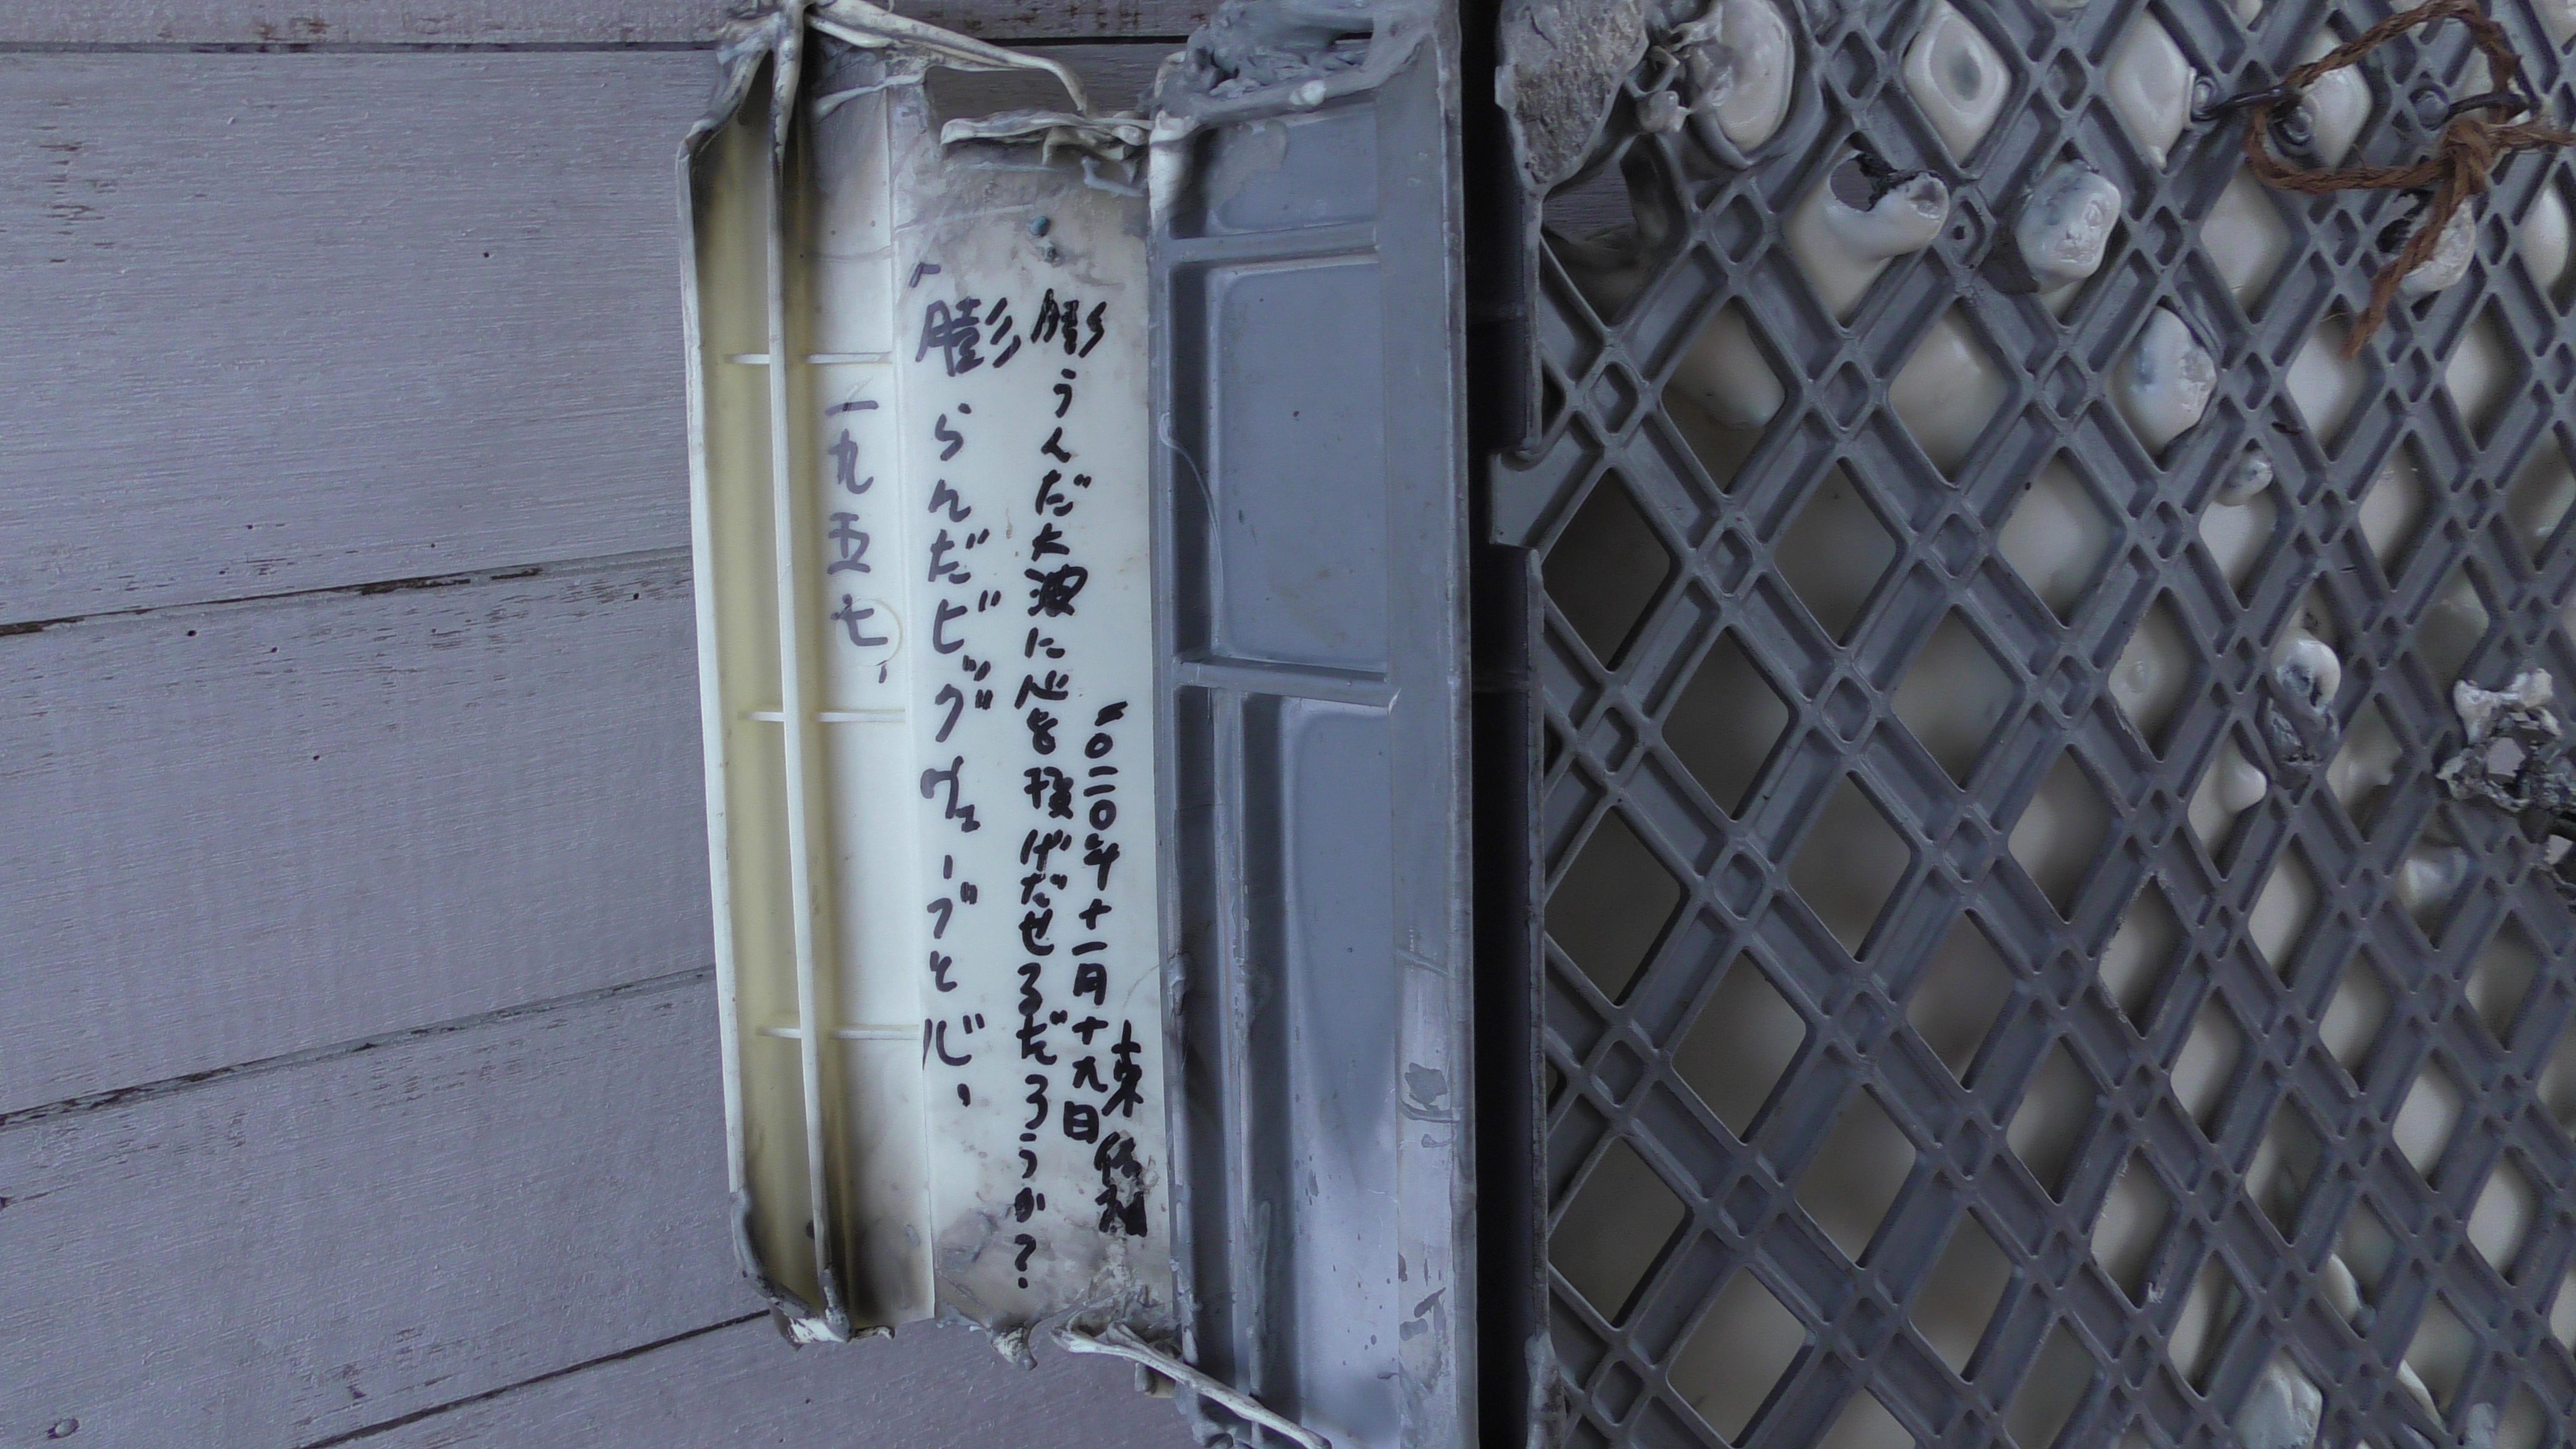 東
二〇二〇年十一月十九日
膨うんだ大波に心を投げだせるだろうか？
膨らんだビッグヴェーブと
一九五七、